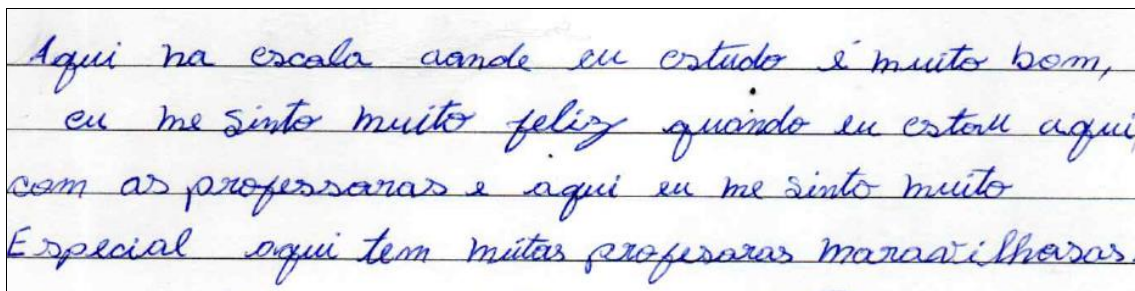 Aqui na escola aonde eu estudo é muito bom,
eu me sinto muito feliz quando eu estou aqui,
com as professoras e aqui eu me sinto muito
Especial aqui tem muitas profesoras maravilhosas.